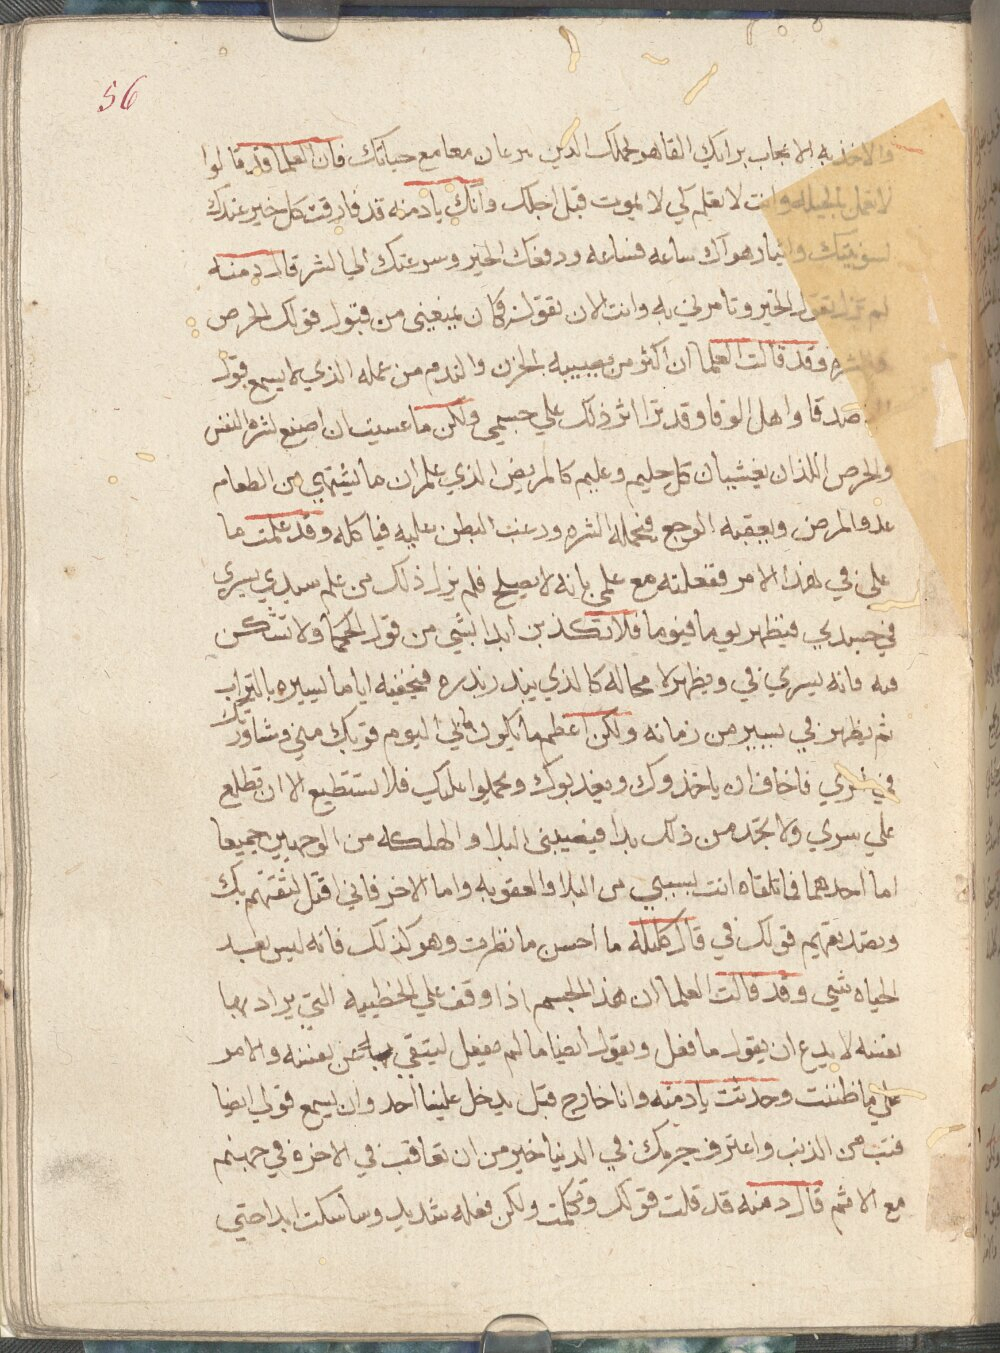 56
والاخذ به الا نجاب برايك القاهر لحملك الدين سرعان معا مع حياتك فان العلما قد قالوا
لا تعمل بالحيله وانت لا تعلم لكي لا تموت قبل اجلك وانك يا دمنه قد فارقت كل خير عندك
وايثار هواك ساعه فساعه ودفعك الخير وسرعتك الي الشر قال دمنه
لم تزل تقول الخير وتامرني به وانت الان تقول كان يمنعني من قبول قولك الحرص
والشره وقد قالت العلما ان اكثر من يصيبه الحزن والندم من عمله الذي لا يسمع قول
الاصدقا واهل الوفا وقد ترا اثر ذلك علي جسمي ولكن ما عسيت ان اصنع لشره النفس
والحرص اللذان يغشيان كل حليم وعليم كالمريض الذي علم ان ما يشتهي من الطعام
عدو المرض ويعقبه الوجع فيحمله الشره ورعب البطن عليه فياكله وقد علمت ما
علي في هذا الامر ففعلته مع علمي بانه لا يصلح فلم يزل ذلك من علم سيدي يسري
في جسدي فيظهر يوما فيوما فلا تكذبن ابدا بشي من قول الحكما ولا تشكن
فيه فانه يسري في ويظهر لا محاله كالذي يبذر بذره فيخفيه اياما يسيره بالتراب
ثم يظهر في يسير من زمانه ولكن اعظم ما يكون علي اليوم قربك مني ومشاورتك
في امري فاخاف ان ياخذوك ويعذبوك ويحملوا عليك فلا تستطيع الا ان تطلع
علي سري ولا تجد من ذلك بدا فيصيبني البلا والهلكه من الوجهين جميعا
اما احدهما فما تلقاه انت بسببي من البلا والعقوبه واما الاخر فاني اقتل لثقتهم بك
وتصديقهم قولك في قال كليله ما احسن ما نظرت وهو كذلك فانه ليس بعد
الحياه شي وقد قالت العلما ان هذا الجسم اذا وقف علي الخطيه التي يراد بها
نفسه لا يدع ان يقول ما فعل ويقول ايضا ما لم يفعل ليتقي به عن نفسه والامر
علي ما ظننت وحدثت يا دمنه وانا خارج قبل يدخل علينا احد وان يسمع قولي ايضا
فتب من الذنب واعترف جرمك في الدنيا خير من ان تعاقب في الاخره في جهنم
مع الاثم قال دمنه قد قلت قولك وتكلمت ولكن فعله شديد وساسكت ابدا حتي